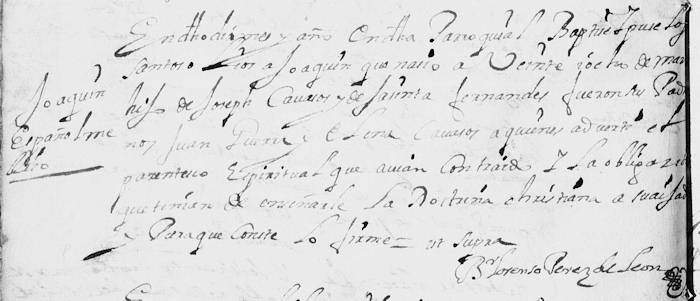 En dho dia mes y año en dha Parroquial Baptise Y puse los
Santos olios a Joaquin que nacio a Veinte y ocho de mar
hijo de Joseph Cavasos y de Jasinta fernandes fueron sus Pad
Joaquin
Español me
nos Juan Guerra y Elena Cavasos a quienes adverti el
parentesco Espiritual que avian Contraido Y la obligazn
que tenian de enseñarle La Doctrina christiana a su aijad
y Para que Conste Lo firme = ut supra
Br Lorenso Perez de Leon